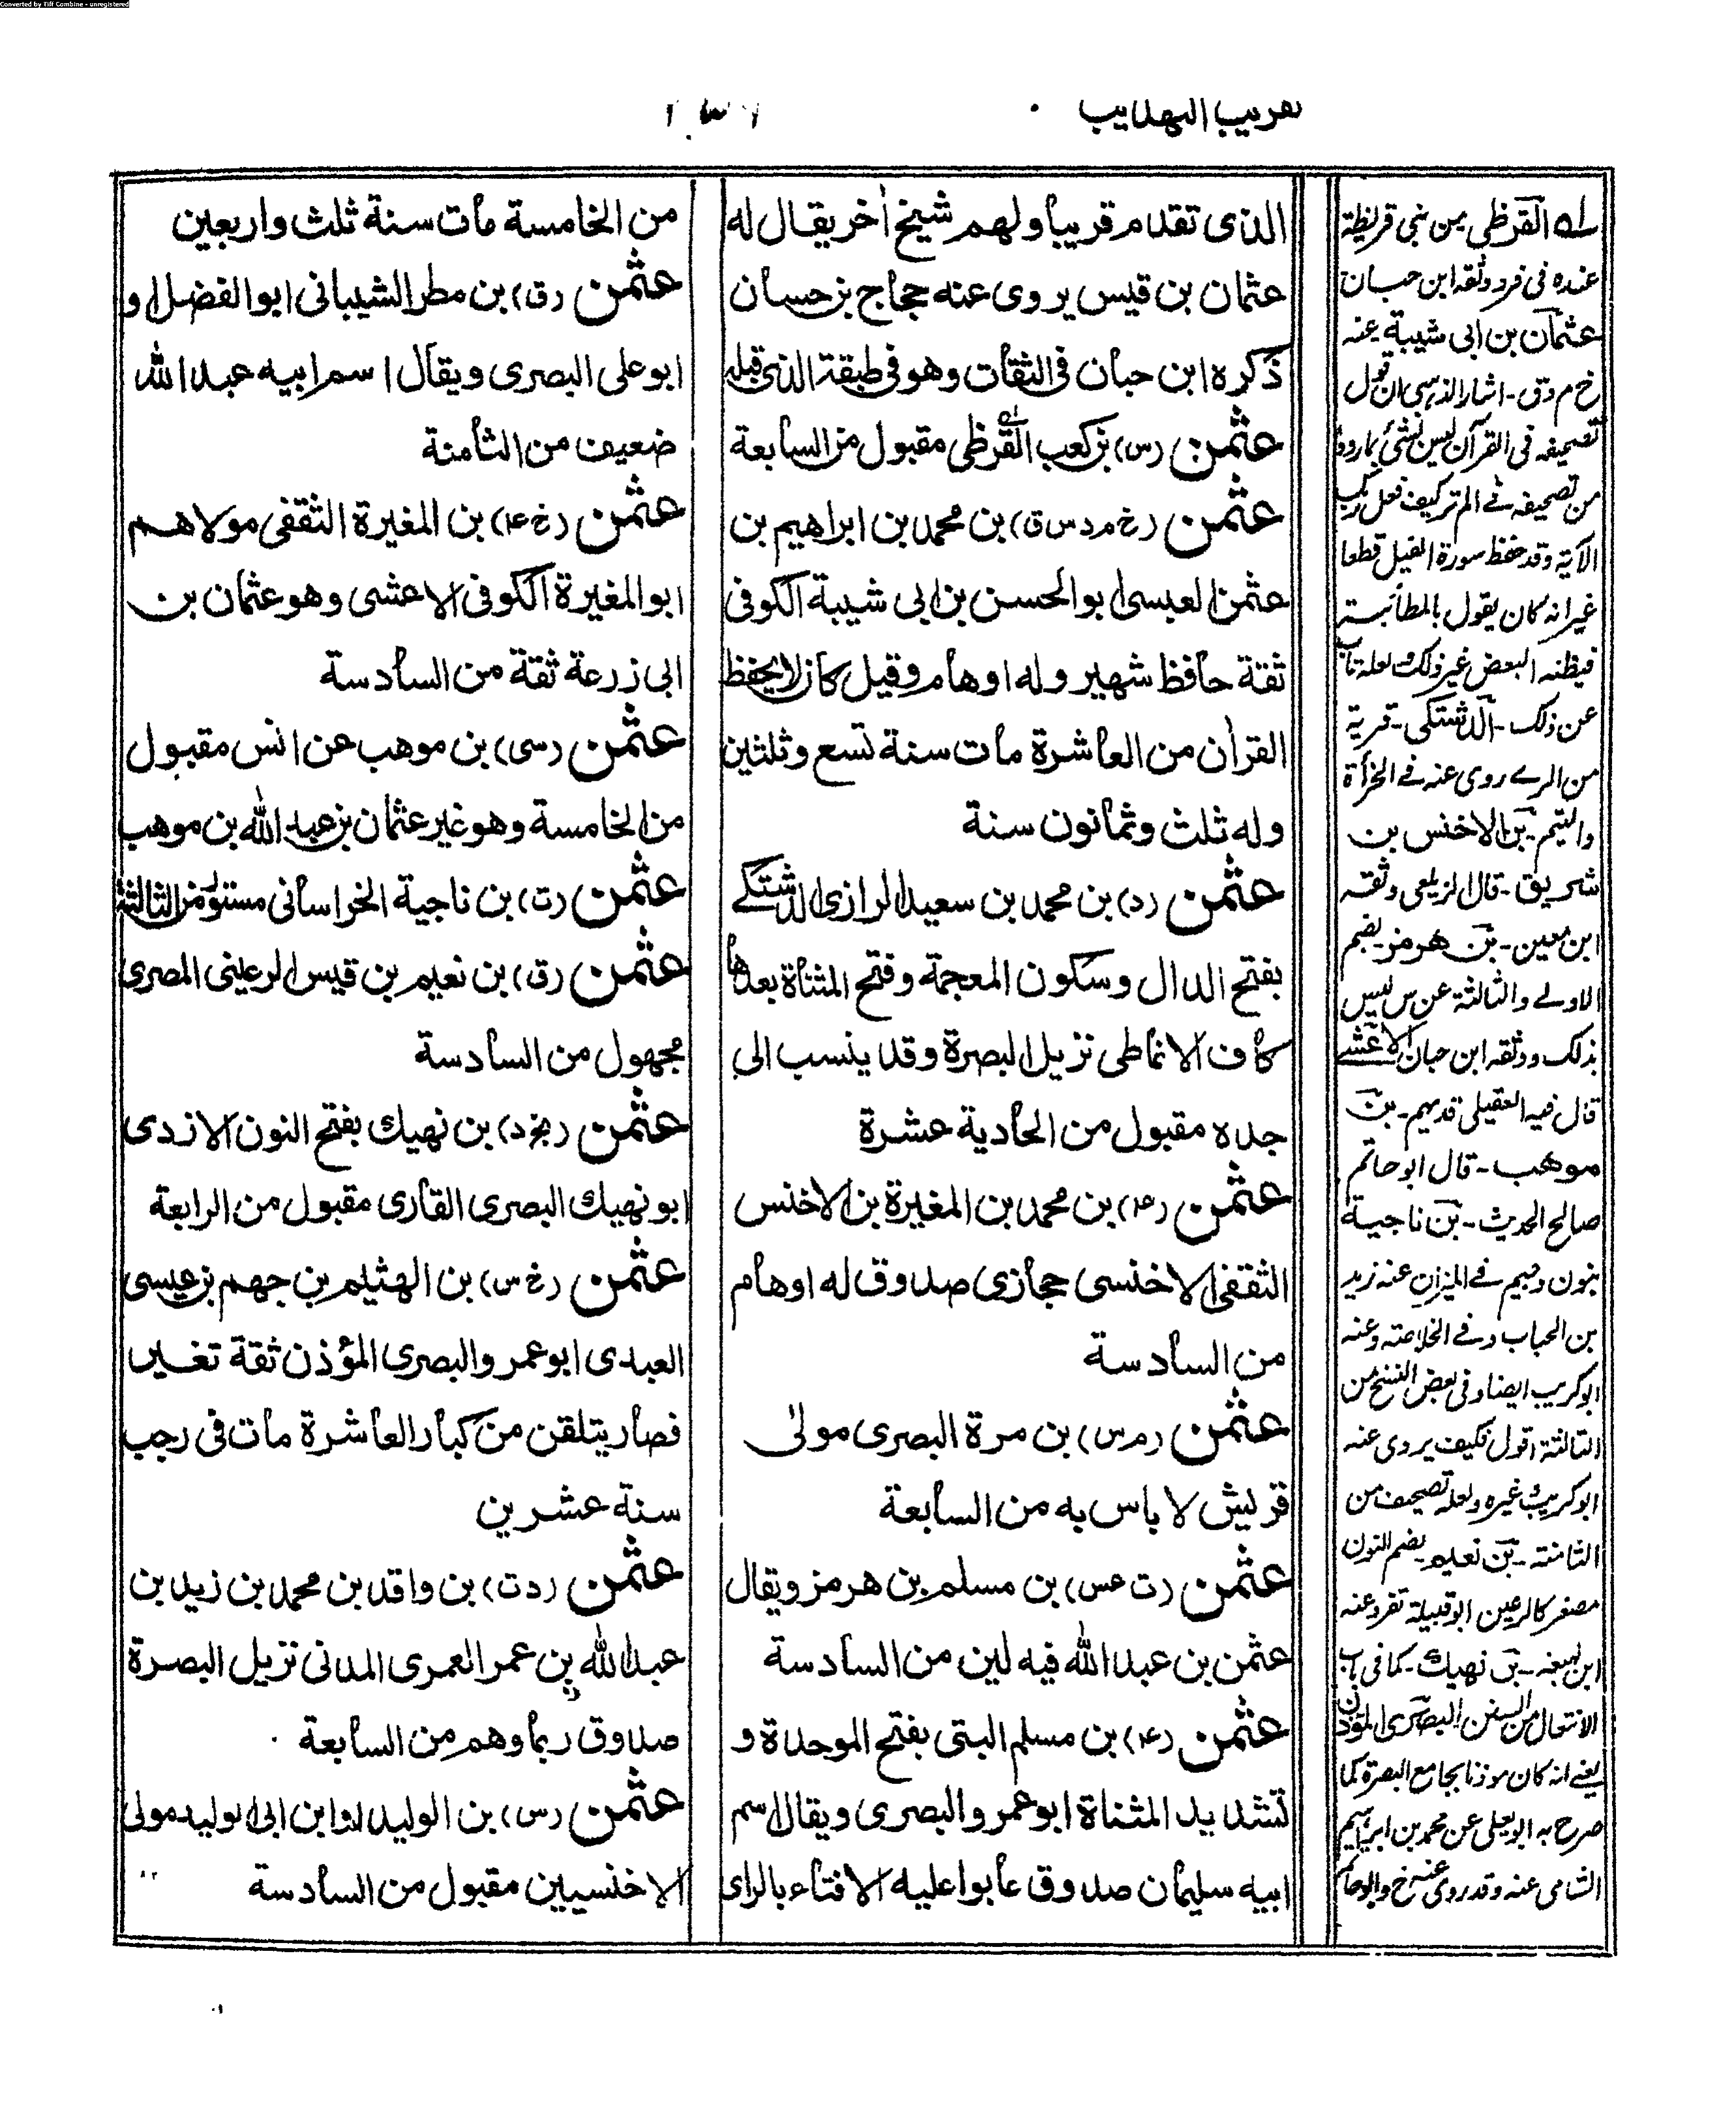 Converted by Tiff Combine - unregistered
تقريب التهذيب
الذى تقدم قريبا ولهم شيخ اخر يقال له
عثمان بن قيس يروى عنه حجاج بن حسان
ذكره ابن حبان فى الثقات وهو فى طبقة الذى قبله
عثمن (س) بن كعب القرظى مقبول من السابعة
عثمن (خ م د س ق) بن محمد بن ابراهيم بن
عثمن العبسى ابو الحسن بن ابى شيبة الكوفى
ثقة حافظ شهير وله اوهام وقيل كان لا يحفظ
القران من العاشرة مات سنة تسع وثلثين
وله ثلث وثمانون سنة
عثمن (د) بن محمد بن سعيد الرازى الدشتكى
بفتح الدال وسكون المعجمة وفتح المثناة بعدها
كاف الانماطى نزيل البصرة وقد ينسب الى
جده مقبول من الحادية عشرة
عثمن (عـ) بن محمد بن المغيرة بن الاخنس
الثقفى الاخنسى حجازى صدوق له اوهام
من السادسة
عثمن (م س) بن مرة البصرى مولى
قريش لا باس به من السابعة
عثمن (ت عس) بن مسلم بن هرمز ويقال
عثمن بن عبد الله فيه لين من السادسة
عثمن (عـ) بن مسلم البتى بفتح الموحدة و
تشديد المثناة ابو عمرو البصرى ويقال اسم
ابيه سليمان صدوق عابوا عليه الافتاء بالراى
من الخامسة مات سنة ثلث واربعين
عثمن (ق) بن مطر الشيبانى ابو الفضل او
ابو على البصرى ويقال اسم ابيه عبد الله
ضعيف من الثامنة
عثمن (خ عـ) بن المغيرة الثقفى مولاهم
ابو المغيرة الكوفى الاعشى وهو عثمان بن
ابى زرعة ثقة من السادسة
عثمن (سى) بن موهب عن انس مقبول
من الخامسة وهو غير عثمان بن عبد الله بن موهب
عثمن (ت) بن ناجية الخراسانى مستور من الثالثة
عثمن (ق) بن نعيم بن قيس الرعينى المصرى
مجهول من السادسة
عثمن (بخ د) بن نهيك بفتح النون الازدى
ابو نهيك البصرى القارى مقبول من الرابعة
عثمن (خ س) بن الهثيم بن جهم بن عيسى
العبدى ابو عمرو البصرى المؤذن ثقة تغير
فصار يتلقن من كبار العاشرة مات فى رجب
سنة عشرين
عثمن (د ت) بن واقد بن محمد بن زيد بن
عبد الله بن عمر العمرى المدنى نزيل البصرة
صدوق ربما وهم من السابعة
عثمن (س) بن الوليد او ابن ابى الوليد مولى
الاخنسيين مقبول من السادسة
القرظى من بنى قريظة
عنده فى فرد وثقه ابن حبان
عثمان بن ابى شيبة عنه
خ م د ق - اشار الذهبى ان قول
تصحيفه فى القرآن ليس بشئ بما ورد
من تصحيفه فى الم تر كيف فعل ربك
الآية وقد حفظ سورة الفيل قطعا
غير انه كان يقول بالمطائبة
فيظنه البعض غير ذلك ولعله تاب
عن ذلك - الدشتكى - قرية
من الرے روى عنه فى الخرأة
والتيم - بن الاخنس بن
شريق - قال الزيلعى وثقه
ابن معين - بن هرمز - بضم
الاولے والثالثة عن س ليس
بذلك ووثقه ابن حبان الاعشے
قال فيه العقيلى قديم - بن
موهب - قال ابو حاتم
صالح الحديث - بن ناجية
بنون وجيم فے الميزان عنه زيد
بن الحباب وفے الخلاصة وعنه
ابو كريب ايضا وفى بعض النسخ من
الثالثة اقول فكيف يروى عنه
ابو كريب وغيره ولعله تصحيف من
الثامنة - بن نعيم - بضم النون
مصغر كالرعين ابو قبيلة تفرد عنه
ابن لهيعة - بن نهيك - كما فى باب
الانتعال من السنن البصرى المؤذن
يعنے انه كان مؤذنا بجامع البصرة كما
صرح به ابو يعلى عن محمد بن ابراهيم
الشامى عنه وقد روى عنه خ وابو حاتم